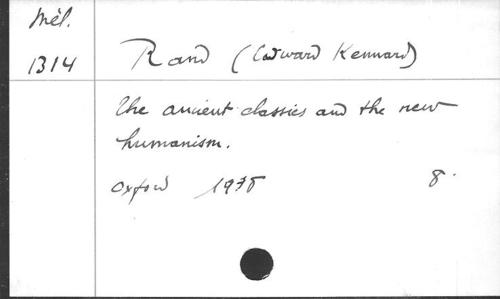 Mél.
1314
Rand (Edward Kennard)
The ancient classics and the new
humanism.
Oxford 1938 8.